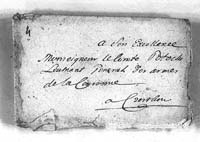 4
a Son Excellence
Monseigneur le Comte Potocki
Lieutenant General des armées
de la Couronne
a